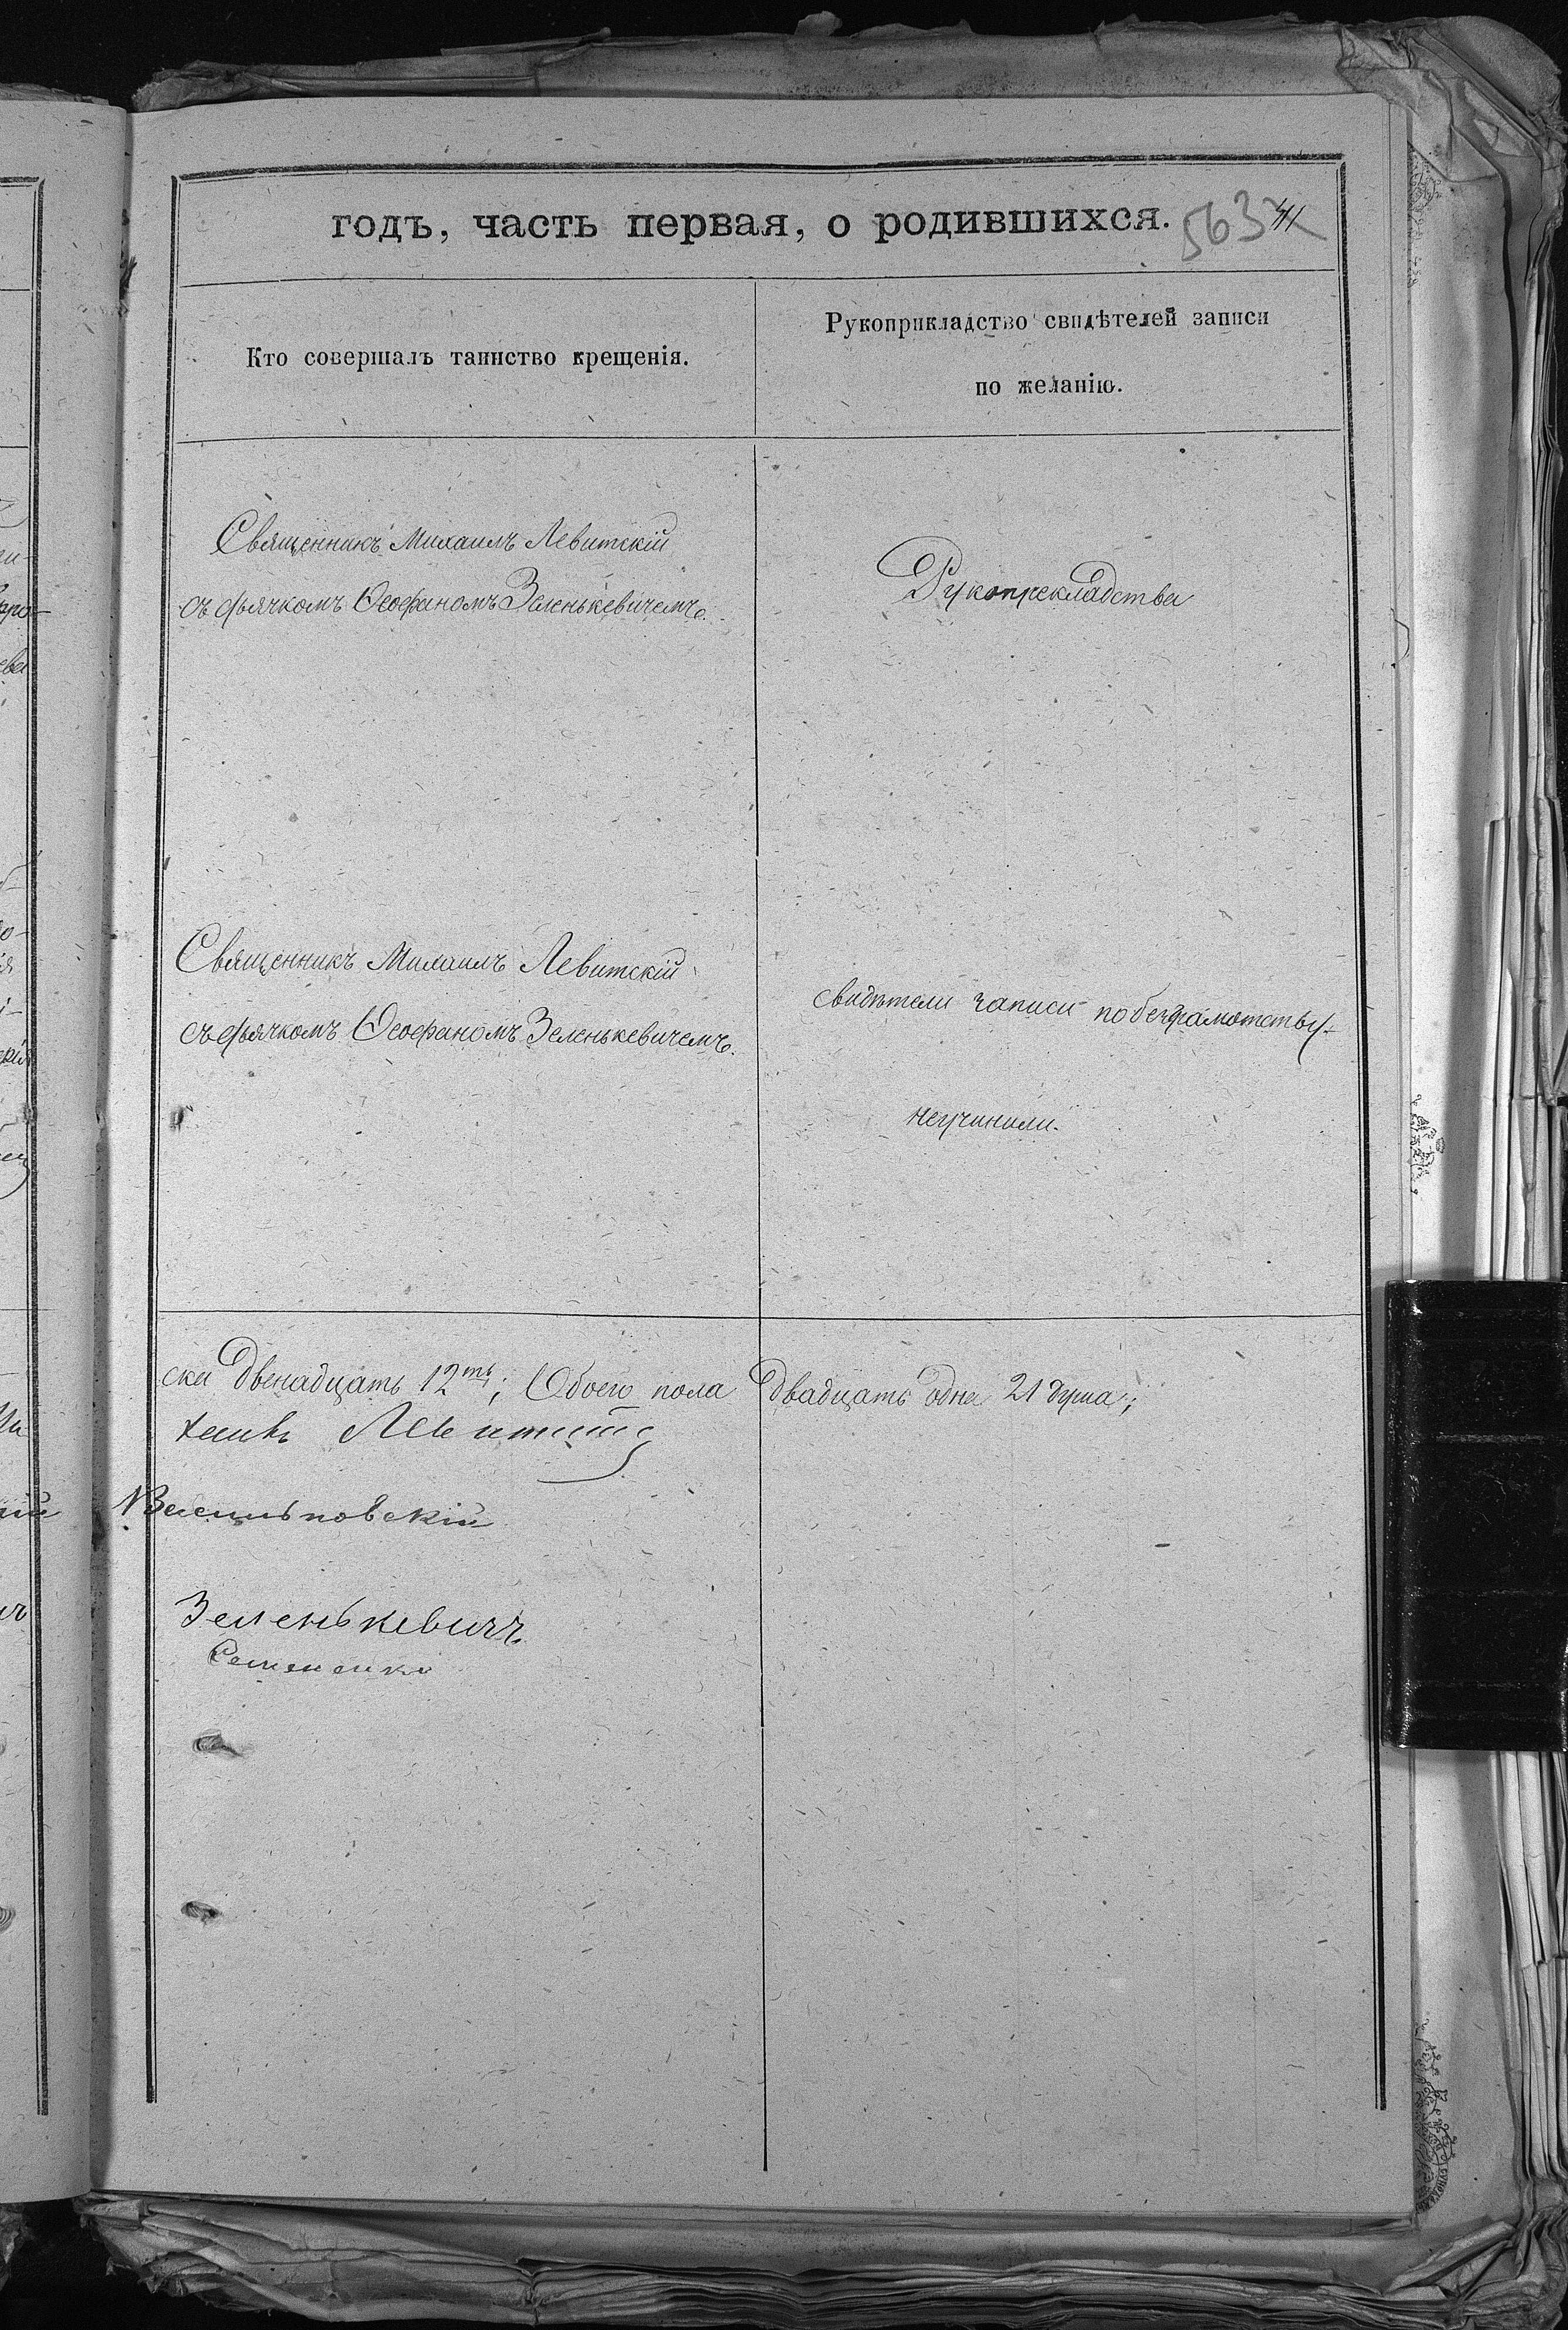 годъ, часть первая, о родившихся. 563
Кто совершалъ таинство крещенія.
Рукоприкладство свидѣтелей записи
по желанію.
Священникъ Михаилъ Левитскій
съ дьячкомъ Ѳеофаномъ Зеленькевичемъ.
Рукопрекладства
Священникъ Михаилъ Левитскій
съ дьячкомъ Ѳеофаномъ Зеленькевичемъ.
свидѣтели записи по безграмотству
неучинили.
ска двенадцать 12ть; Обоего пола двадцать одна 21 душа;
хаилъ Левитскій
Васильковскій
Зеленькевичъ
Семененко